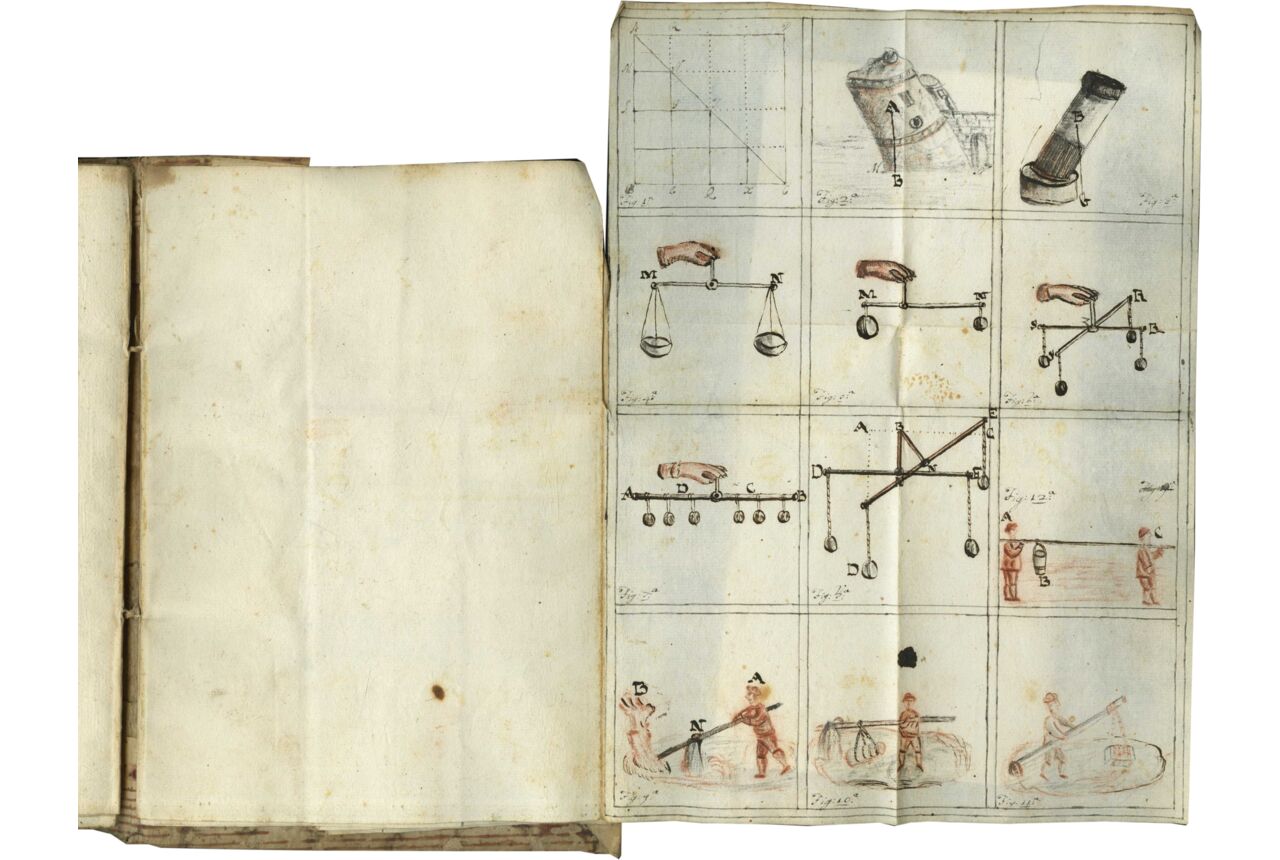 A
Fig: 1ª
A
M
B
Fig: 2ª
B
G
Fig: 3ª
M N
Fig: 4ª
M N
Fig: 5ª
R
S B
Fig: 6ª
A D C B
Fig: 7ª
A B E
C
D N E
D
Fig: 8ª
Fig: 12ª
A C
B
B A
N
Fig: 9ª
Fig: 10ª
Fig: 11ª